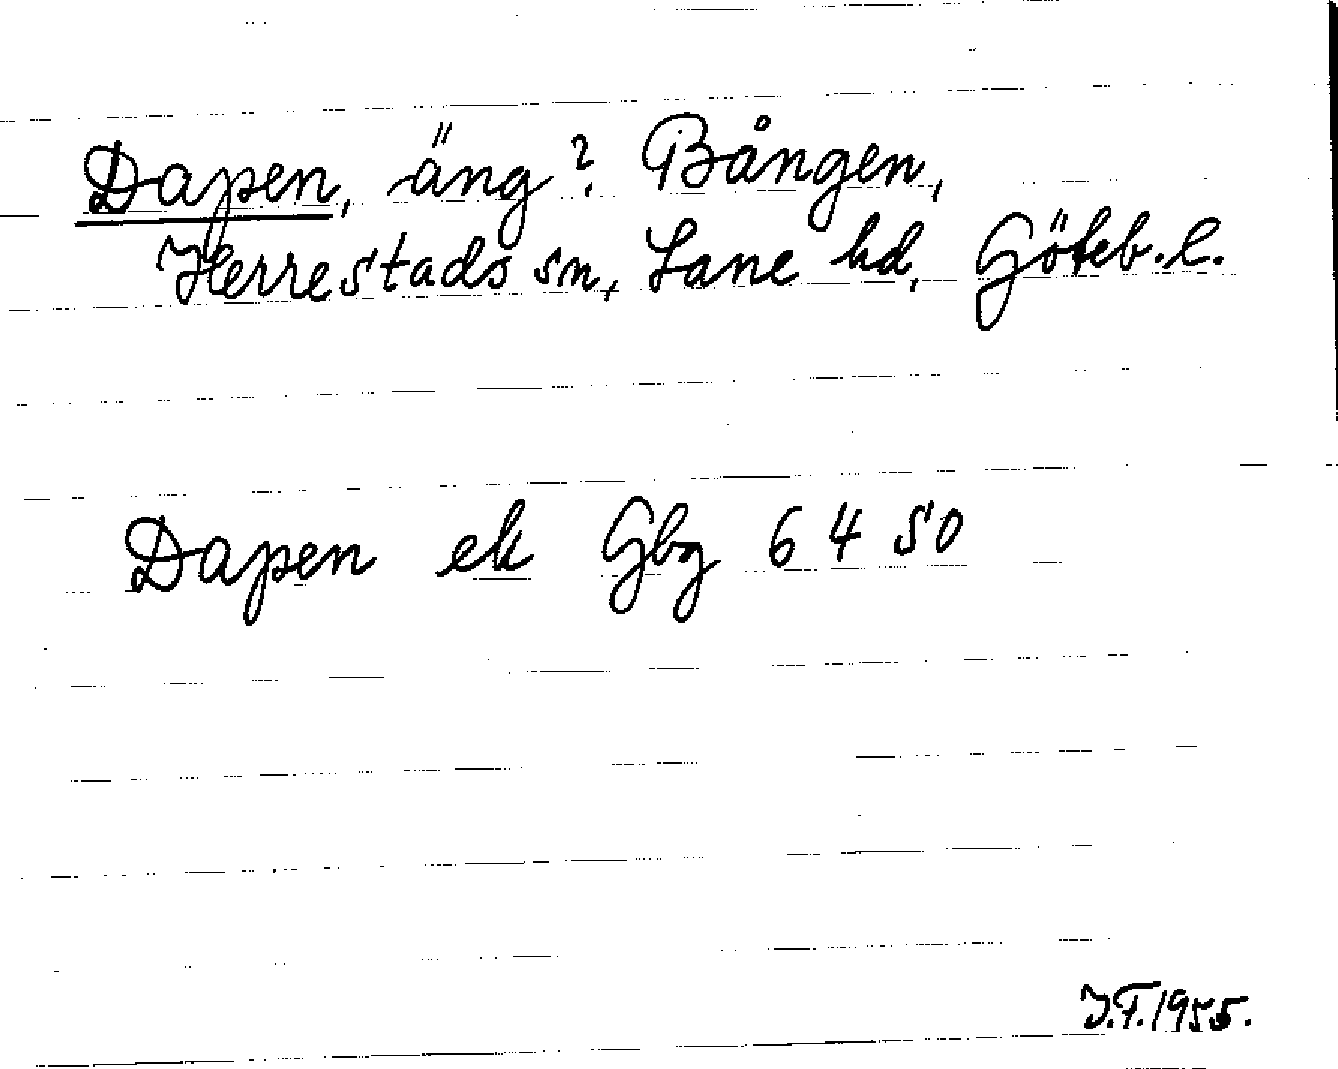 Dapen, äng? Bången,
Herrestads sn, Lane hd, Göteb. l.
Dapen ek Gbg 6 4 50
I.F. 1955.